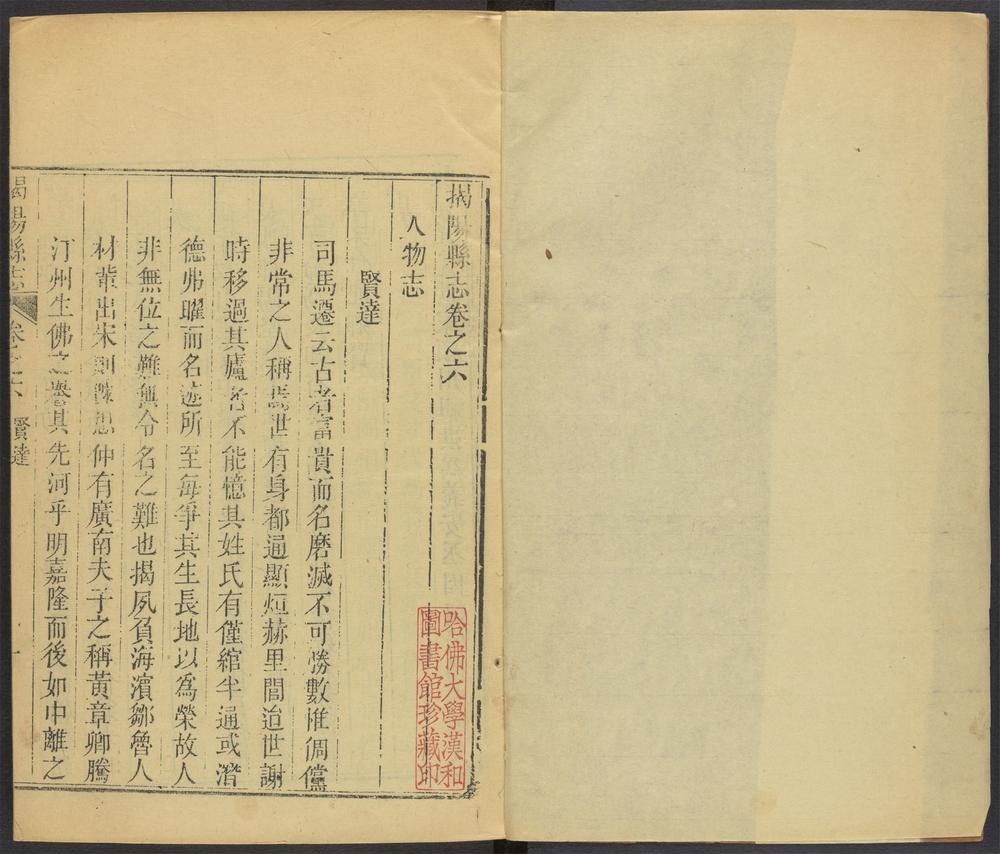 揭陽縣志卷之六
人物志
賢達
司馬遷云古者富貴而名磨滅不可勝數惟倜儻
非常之人稱焉世有身都通顯烜赫里閭迨世謝
時移過其廬者不能憶其姓氏有僅綰半通或潛
德弗曜而名迹所至每爭其生長地以為榮故人
非無位之難無令名之難也揭夙負海濱鄒魯人
材輩出宋則 仲有廣南夫子之稱黃章卿騰
汀州生佛之譽其先河乎明嘉隆而後如中離之
揭陽縣志
卷之六
賢達
一
哈佛大學漢和
圖書館珍藏印